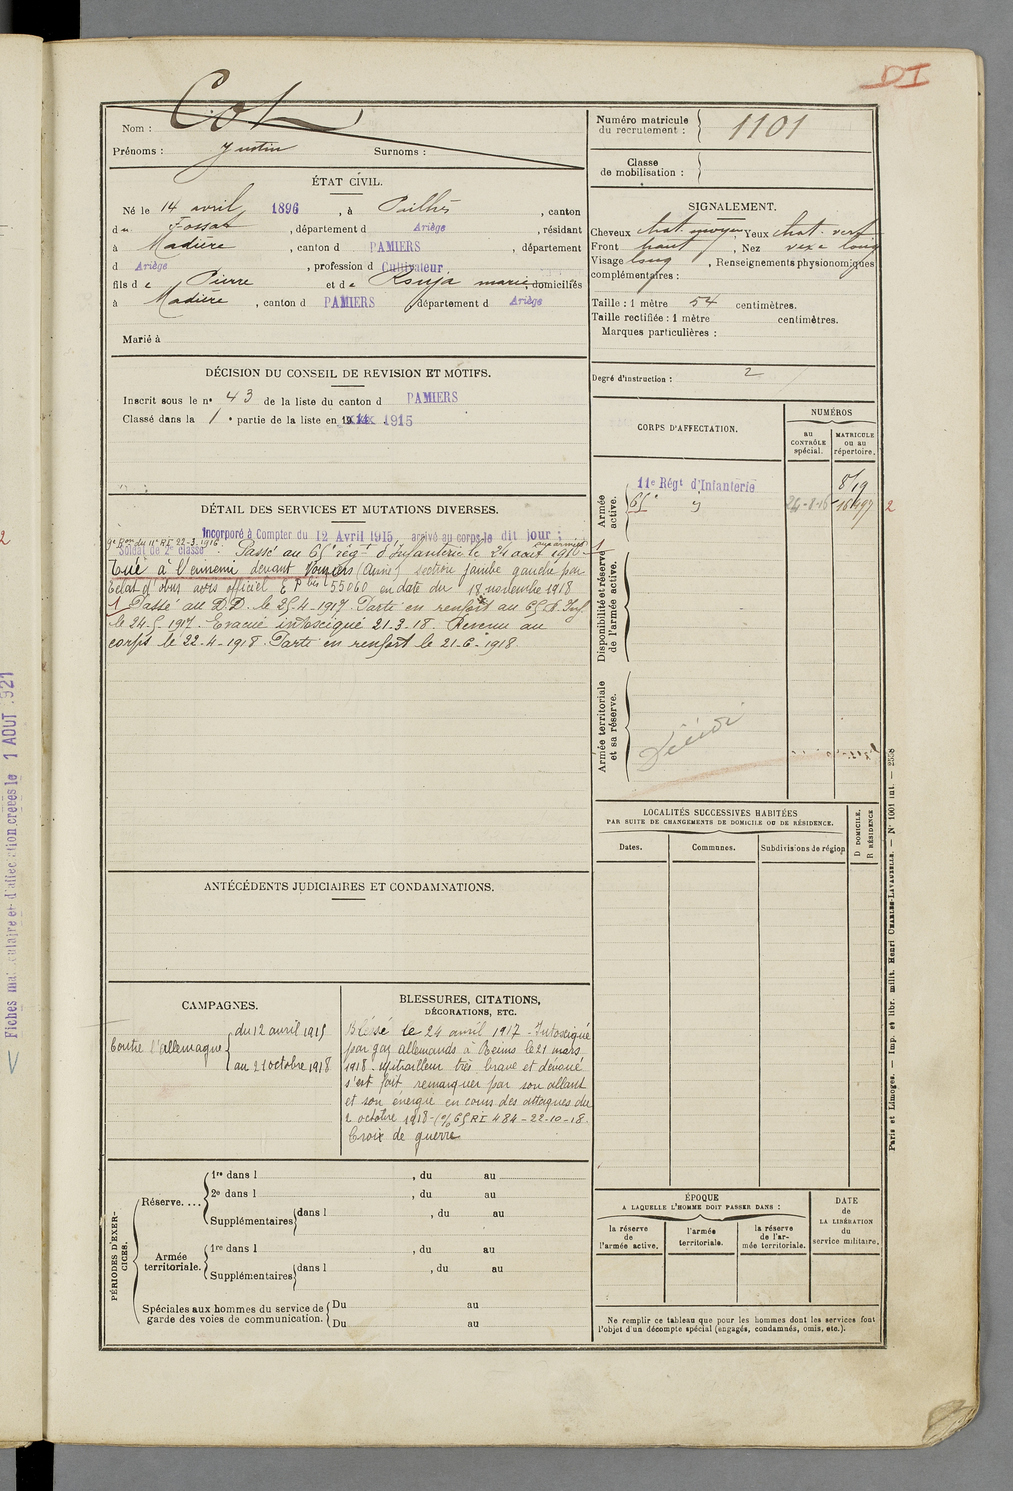 DI
Nom : Cot
Prénoms : Justin Surnoms :
Numéro matricule
du recrutement : 1101
Classe
de mobilisation :
ÉTAT CIVIL.
Né le 14 avril 1896, à Pailhès, canton
du Fossat, département d Ariège, résidant
à Madière, canton d PAMIERS, département
d Ariège, profession d Cultivateur
fils de Pierre et de marie, domiciliés
à Madière, canton d PAMIERS, département d Ariège
Marié à
SIGNALEMENT.
Cheveux chat. moyen, Yeux chat. vert
Front haut, Nez vexe long
Visage long, Renseignements physionomiques
complémentaires :
Taille : 1 mètre 54 centimètres.
Taille rectifiée : 1 mètre centimètres.
Marques particulières :
Degré d'instruction : 2
DÉCISION DU CONSEIL DE RÉVISION ET MOTIFS.
Inscrit sous le n° 43 de la liste du canton d PAMIERS
Classé dans la 1e partie de la liste en 1915
CORPS D'AFFECTATION.
NUMÉROS
au
CONTRÔLE
spécial.
MATRICULE
ou au
répertoire.
Armée
active.
11e Régt d'Infanterie 8/19
65e 24-8-16 16497 2
Disponibilité et réserve
de l'armée active.
Armée territoriale
et sa réserve.
DÉTAIL DES SERVICES ET MUTATIONS DIVERSES.
Incorporé à Compter du 12 Avril 1915, arrivé au corps le dit jour ;
9e du 11e RI 22-3-1916
Soldat de 2e classe. Passé au 65e régt d'Infanterie le 24 août 1916 aux armées
Tué à l'ennemi devant Vouziers section jambe gauche par
Eclat d'obus avis officiel E P bis 55060 en date du 18 novembre 1918
1 Passé au D.D. le 25-4-1917. Parti en renfort au 65 R. Inf
le 24-5-1917. Evacué intoxiqué 21-3-18. Revenu au
corps le 22-4-1918. Parti en renfort le 21-6-1918.
LOCALITÉS SUCCESSIVES HABITÉES
PAR SUITE DE CHANGEMENTS DE DOMICILE OU DE RÉSIDENCE.
Dates. Communes. Subdivisions de région
D DOMICILE.
R RÉSIDENCE
ANTÉCÉDENTS JUDICIAIRES ET CONDAMNATIONS.
CAMPAGNES.
Contre l'allemagne
du 12 avril 1915
au 21 octobre 1918
BLESSURES, CITATIONS,
DÉCORATIONS, ETC.
Blessé le 24 avril 1917 - Intoxiqué
par gaz allemands à Reims le 21 mars
1918. Mitrailleur très brave et dévoué
s'est fait remarquer par son allant
et son énergie en cours des attaques du
2 octobre 1918 - (% 65 RI 484 - 22-10-18.
Croix de guerre
PÉRIODES D'EXERCICES.
Réserve....
1re dans l , du au
2e dans l , du au
Supplémentaires dans l , du au
Armée
territoriale.
1re dans l , du au
Supplémentaires dans l , du au
Spéciales aux hommes du service de
garde des voies de communication.
Du au
Du au
ÉPOQUE
A LAQUELLE L'HOMME DOIT PASSER DANS :
la réserve
de
l'armée active.
l'armée
territoriale.
la réserve
de l'ar-
mée territoriale.
DATE
de
LA LIBÉRATION
du
service militaire.
Ne remplir ce tableau que pour les hommes dont les services font
l'objet d'un décompte spécial (engagés, condamnés, omis, etc.).
Paris et Limoges. — Imp. et libr. milit. Henri CHARLES-LAVAUZELLE. — N° 1001 int. — 2558
Fiches matriculaire et d'affectation créées le 1 AOUT 1921